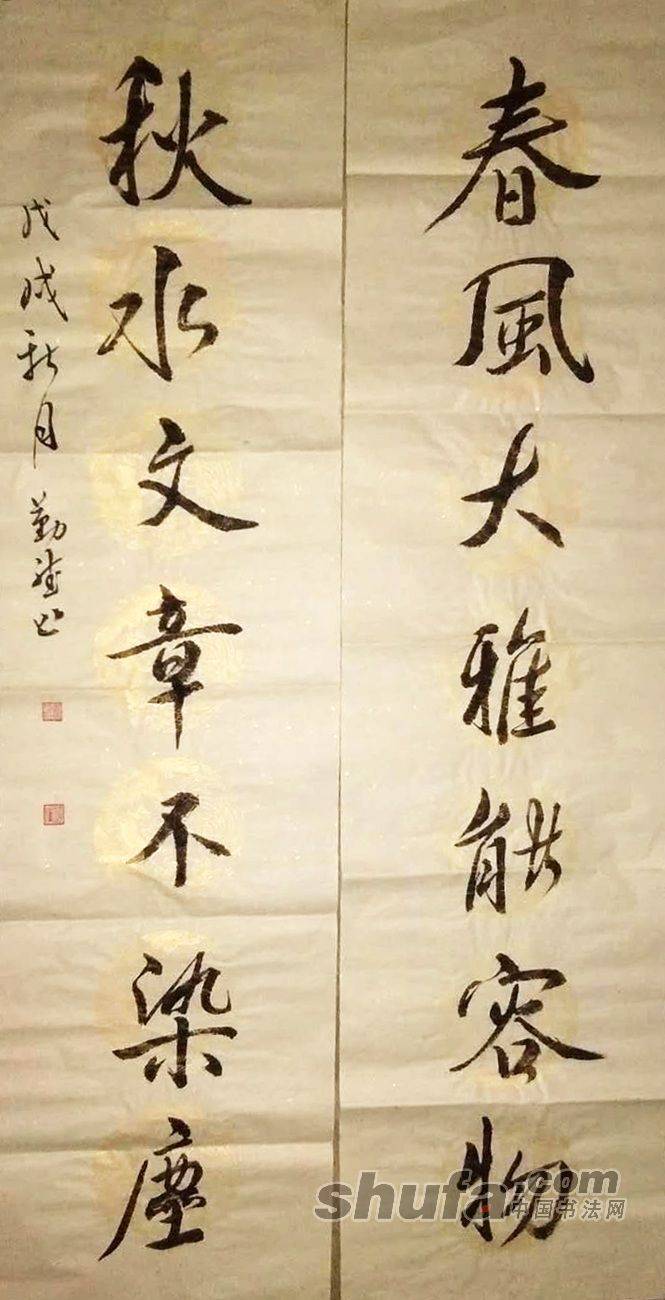 春風大雅能容物
秋水文章不染塵
戊戌秋月
勤
shufa.com
中国书法网